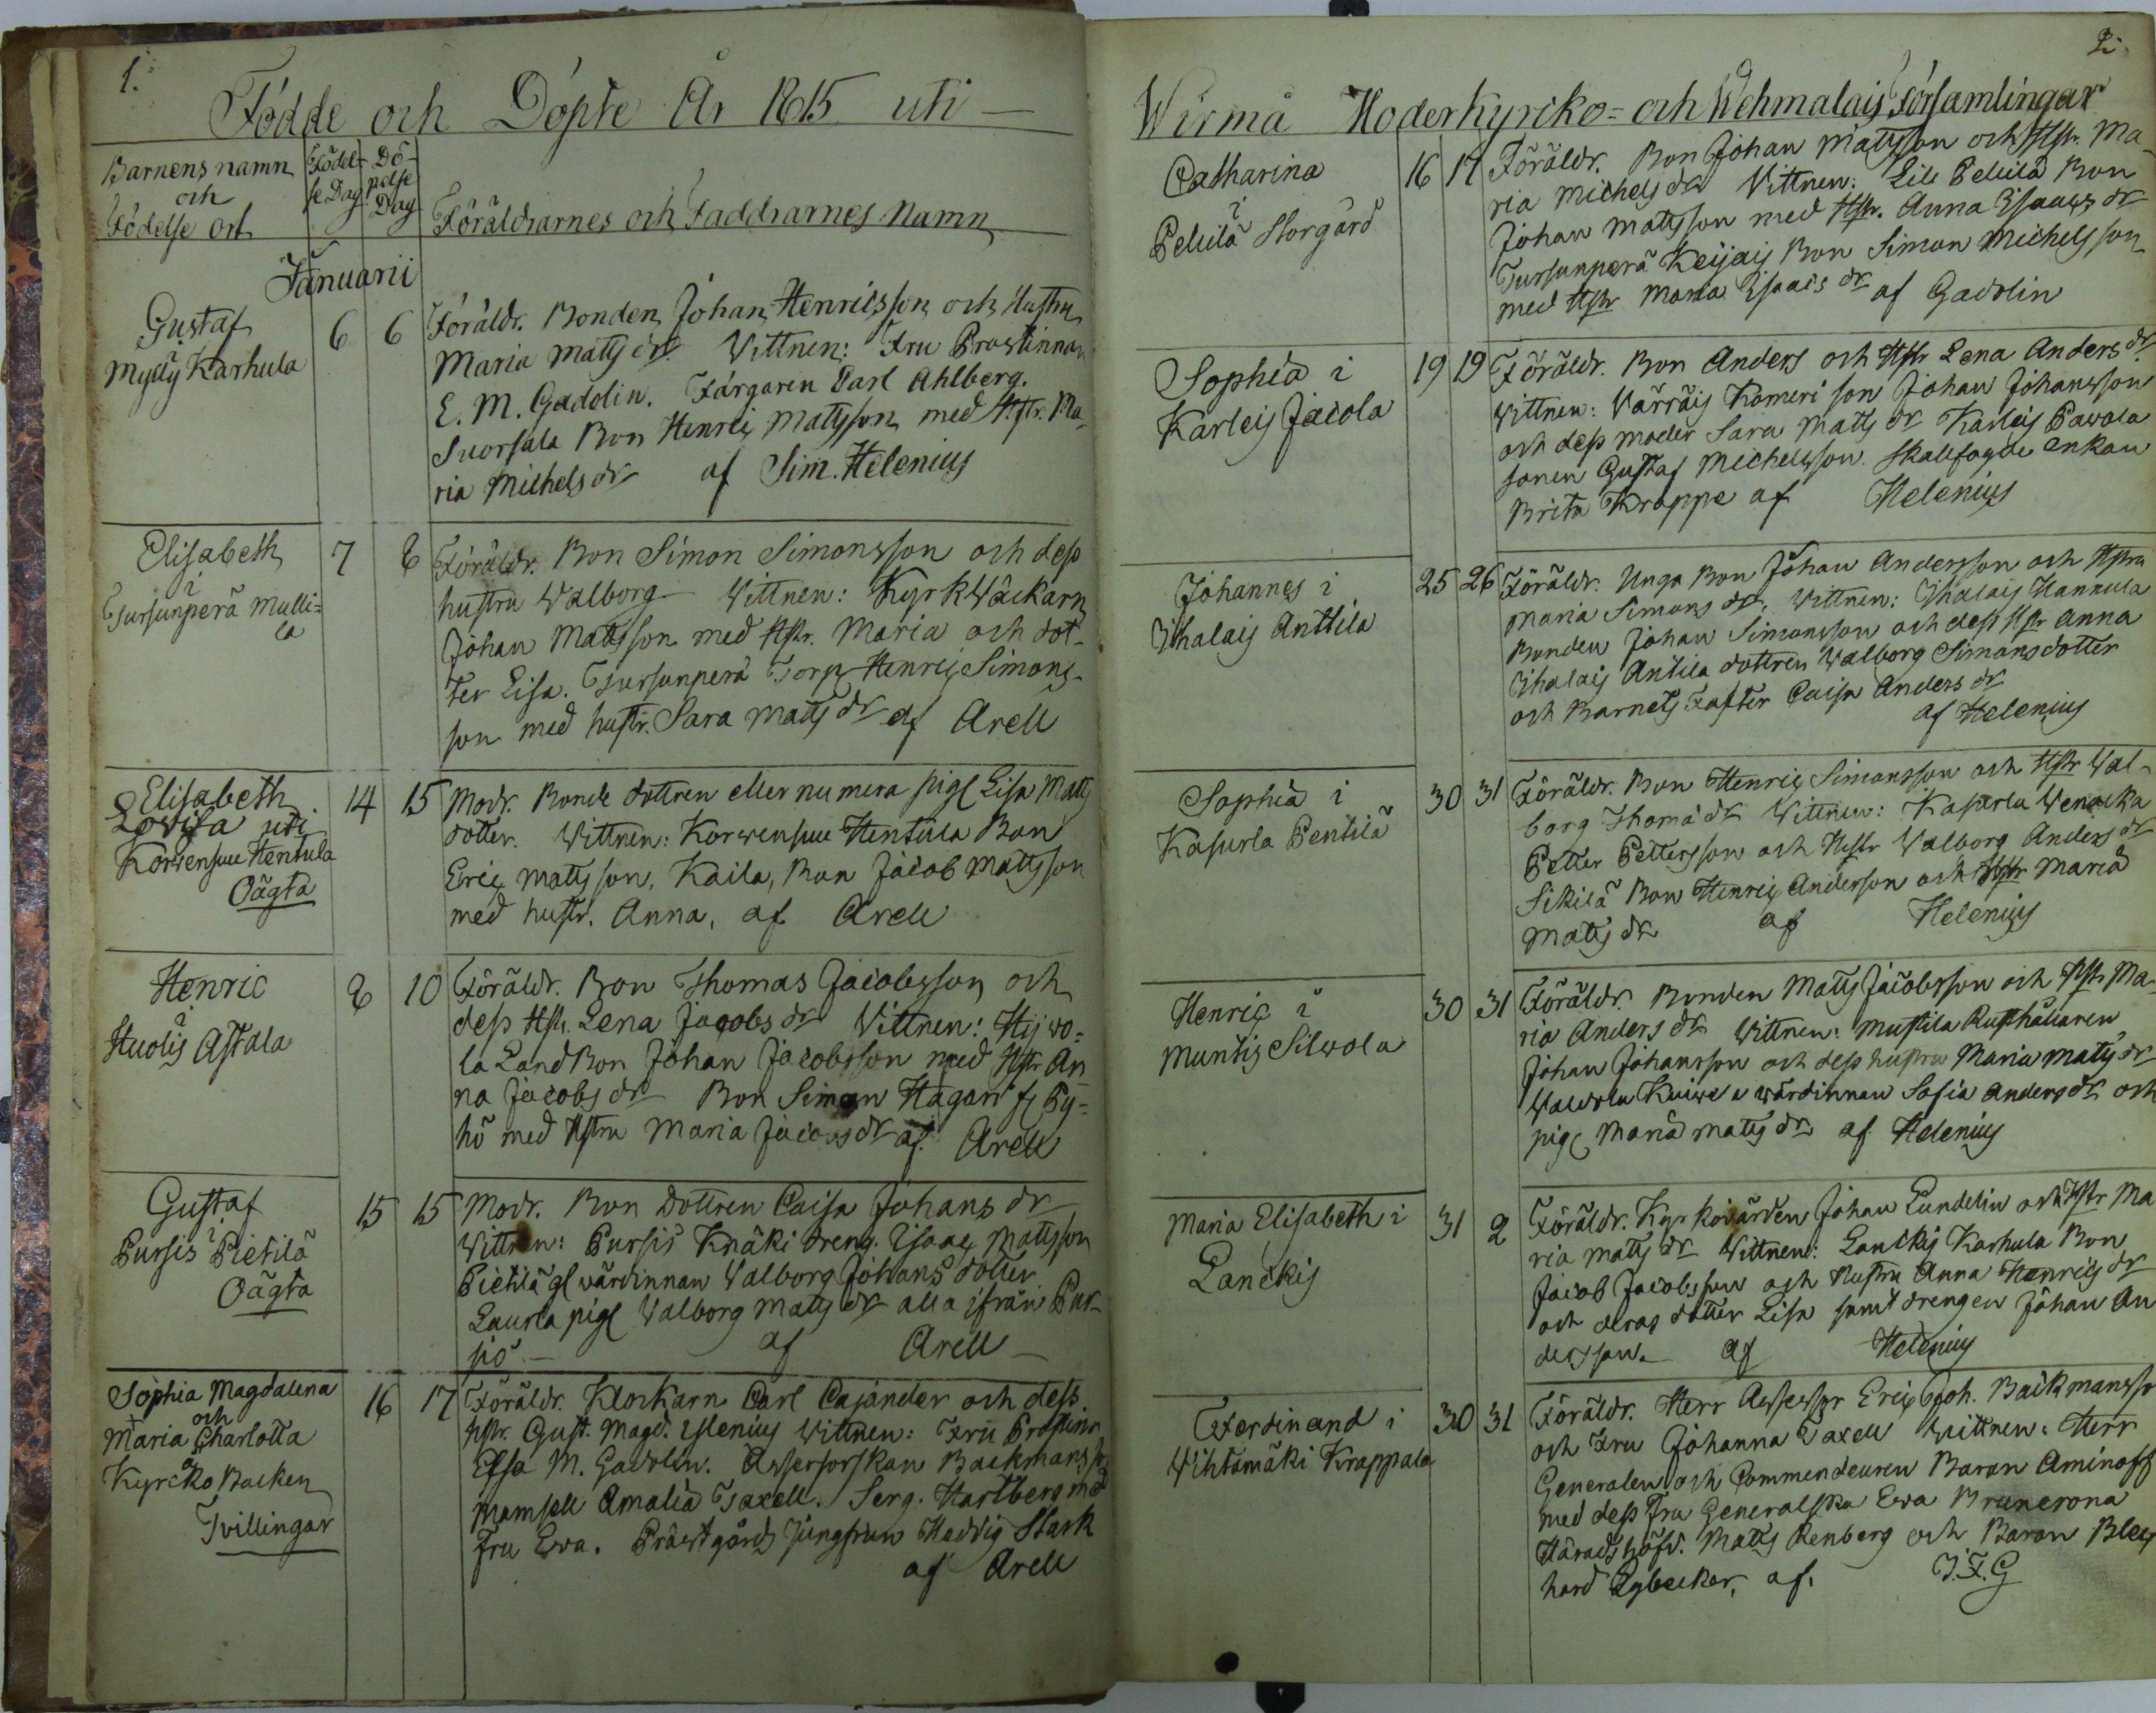 1.
Födde och Döpte År 1815 uti —
Barnens namn
och
Födelse ort
Födel-
se Dag
Dö-
pelse
Dag
Föräldrarnes och Faddrarnes Namn
Januarii
Gustaf
Myllÿ Karhula
6 6
Föräldr. Bonden Johan Henricsson och Hustru
Maria Matts dr Vittnen: Fru Prostinnan
E. M. Gadolin. Färgaren Carl Ahlberg.
Suorsala Bon Henric Mattsson med Hstr. Ma-
ria Michels dr af Sim. Helenius
Elisabeth
i
Tursunperä Mulli=
la
7 8
Föräldr. Bon Simon Simonsson och dess
hustru Walborg Vittnen: Kyrkwäckarn
Johan Mattsson med Hstr. Maria och dot-
ter Lisa. Tursunperä Torp Henric Simons-
son med hustr. Sara Matts dr af Arell
Elisabeth
Lovisa uti
Korvensuu Hentula
Oägta
14 15
Modr. Bonde dottren eller numera pig Lisa Matts
dotter. Vittnen: Korwensuu Hentula Bon
Eric Mattsson, Kaila, Bon Jacob Mattsson
med hustr. Anna, af Arell
Henric
i
Huolis Astala
8 10
Föräldr. Bon Thomas Jacobsson och
dess Hstr. Lena Jacobs dr Vittnen: Hijwo=
la LandBon Johan Jacobsson med Hstr An-
na Jacobs dr Bon Simon Hagari fr Py=
hö med Hstru Maria Jacobs dr af. Arell
Gustaf
i
Pursis Pietilä
Oägta
15 15
Modr. Bon dottren Caisa Johans dr
Vittnen: Pursis Knäki dreng. Isaac Mattsson
Pietilä gl wärdinnan Valborg Johans dotter
Laurla pig Valborg Matts dr alla ifrån Pur-
sio — af Arell —
Sophia Magdalena
och
+
Maria Charlotta
å
Kyrcko Backen
Tvillingar
16 17
Föräldr. Klockarn Carl Cajander och dess
hstr. Gust. Magd. Eslenius Vittnen: Fru Prostinn
Elsa M. Gadolin. Assessorskan Backmansson
Mamsell Amalia Taxell. Serg. Hartberg med
Fru Eva. Prästgårds Jungfrun Hedvig Stark
af Arell
2.
Wirmå Moderkyrcko= och Wehmalais Församlingar
Catharina
i
Peluilä Storgård
16 17
Föräldr. Bon Johan Mattsson och Hstr. Ma-
ria Michels dr Vittnen: Lill Peluilä Bon
Johan Mattsson med Hstr. Anna Isaacs dr
Tursunperä Keijais Bon Simon Michelsson
med Hstr Maria Isaacs dr af Gadolin
Sophia i
Karleis Jacola
19 19
Föräldr. Bon Anders och Hstr Lena Anders dr
Vittnen: Värräis Komeri son Johan Johansson
och dess moder Sara Matts dr Karleis Pavola
sonen Gustaf Michelsson. Skallfogde enkan
Brita Krappe af Helenius
Johannes i
Ihalais Anttila
25 26
Föräldr. Unga Bon Johan Andersson och Hstru
Maria Simons dr, Vittnen: Ihalais Hannula
Bonden Johan Simonsson och dess Hstr Anna
Ihalais Antila dottren Valborg Simonsdotter
och Barnets Faster Caisa Anders dr
af Helenius
Sophia i
Kasurla Pentilä
30 31
Föräldr. Bon Henric Simonsson och Hstr Val-
borg Thoma dr Vittnen: Kasurla Venäka
Petter Pettersson och Hstr Valborg Anders dr
Sikilä Bon Henric Andersson och Hstr Maria
Matts dr af Helenius
Henric i
Muntis Silwola
30 31
Föräldr. Bonden Matts Jacobsson och Hstr Ma-
ria Anders dr Vittnen: Mustila Rusthållaren
Johan Johansson och dess hustru Maria Matts dr
wärdinnan Sofia Anders dr och
pig Maria Matts dr af Helenius
Maria Elisabeth i
Lanckis
31 2
Föräldr. Kyrkovärden Johan Lundelin och Hstr Ma
ria Matts dr Vittnen: Lanckis Karhula Bon
Jacob Jacobsson och Hustru Anna Henrics dr
och deras dotter Lisa samt drengen Johan An
dersson. af Helenius
Ferdinand i
Vihtamäki Krappala
30 31
Föräldr. Herr Assessor Eric Joh. Backmansson
och Fru Johanna Taxell Vittnen: Herr
Generalen och Commendeuren Baron Aminoff
med dess Fru Generalska Eva Brunerona
Häradshöfd. Matts Renberg och Baron Blec
hard Rybecker, af. J. F. G